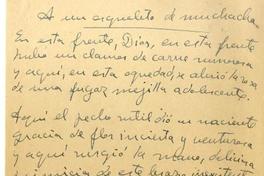 A un esqueleto de muchacha
En esta frente, Dios, en esta frente
hubo un clamor de carne rumorosa
y aquí, en esta oquedad, se abrió la rosa
de una fugaz mejilla adolescente.
Aquí el pecho sutil dió su naciente
gracia de flor incierta y venturosa
y aquí surgió la mano, deliciosa
primicia de este brazo inexistente